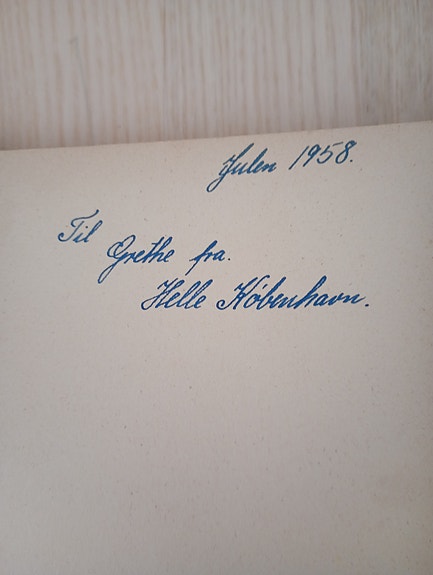 Julen 1958.
Til
Grethe fra.
Helle København.